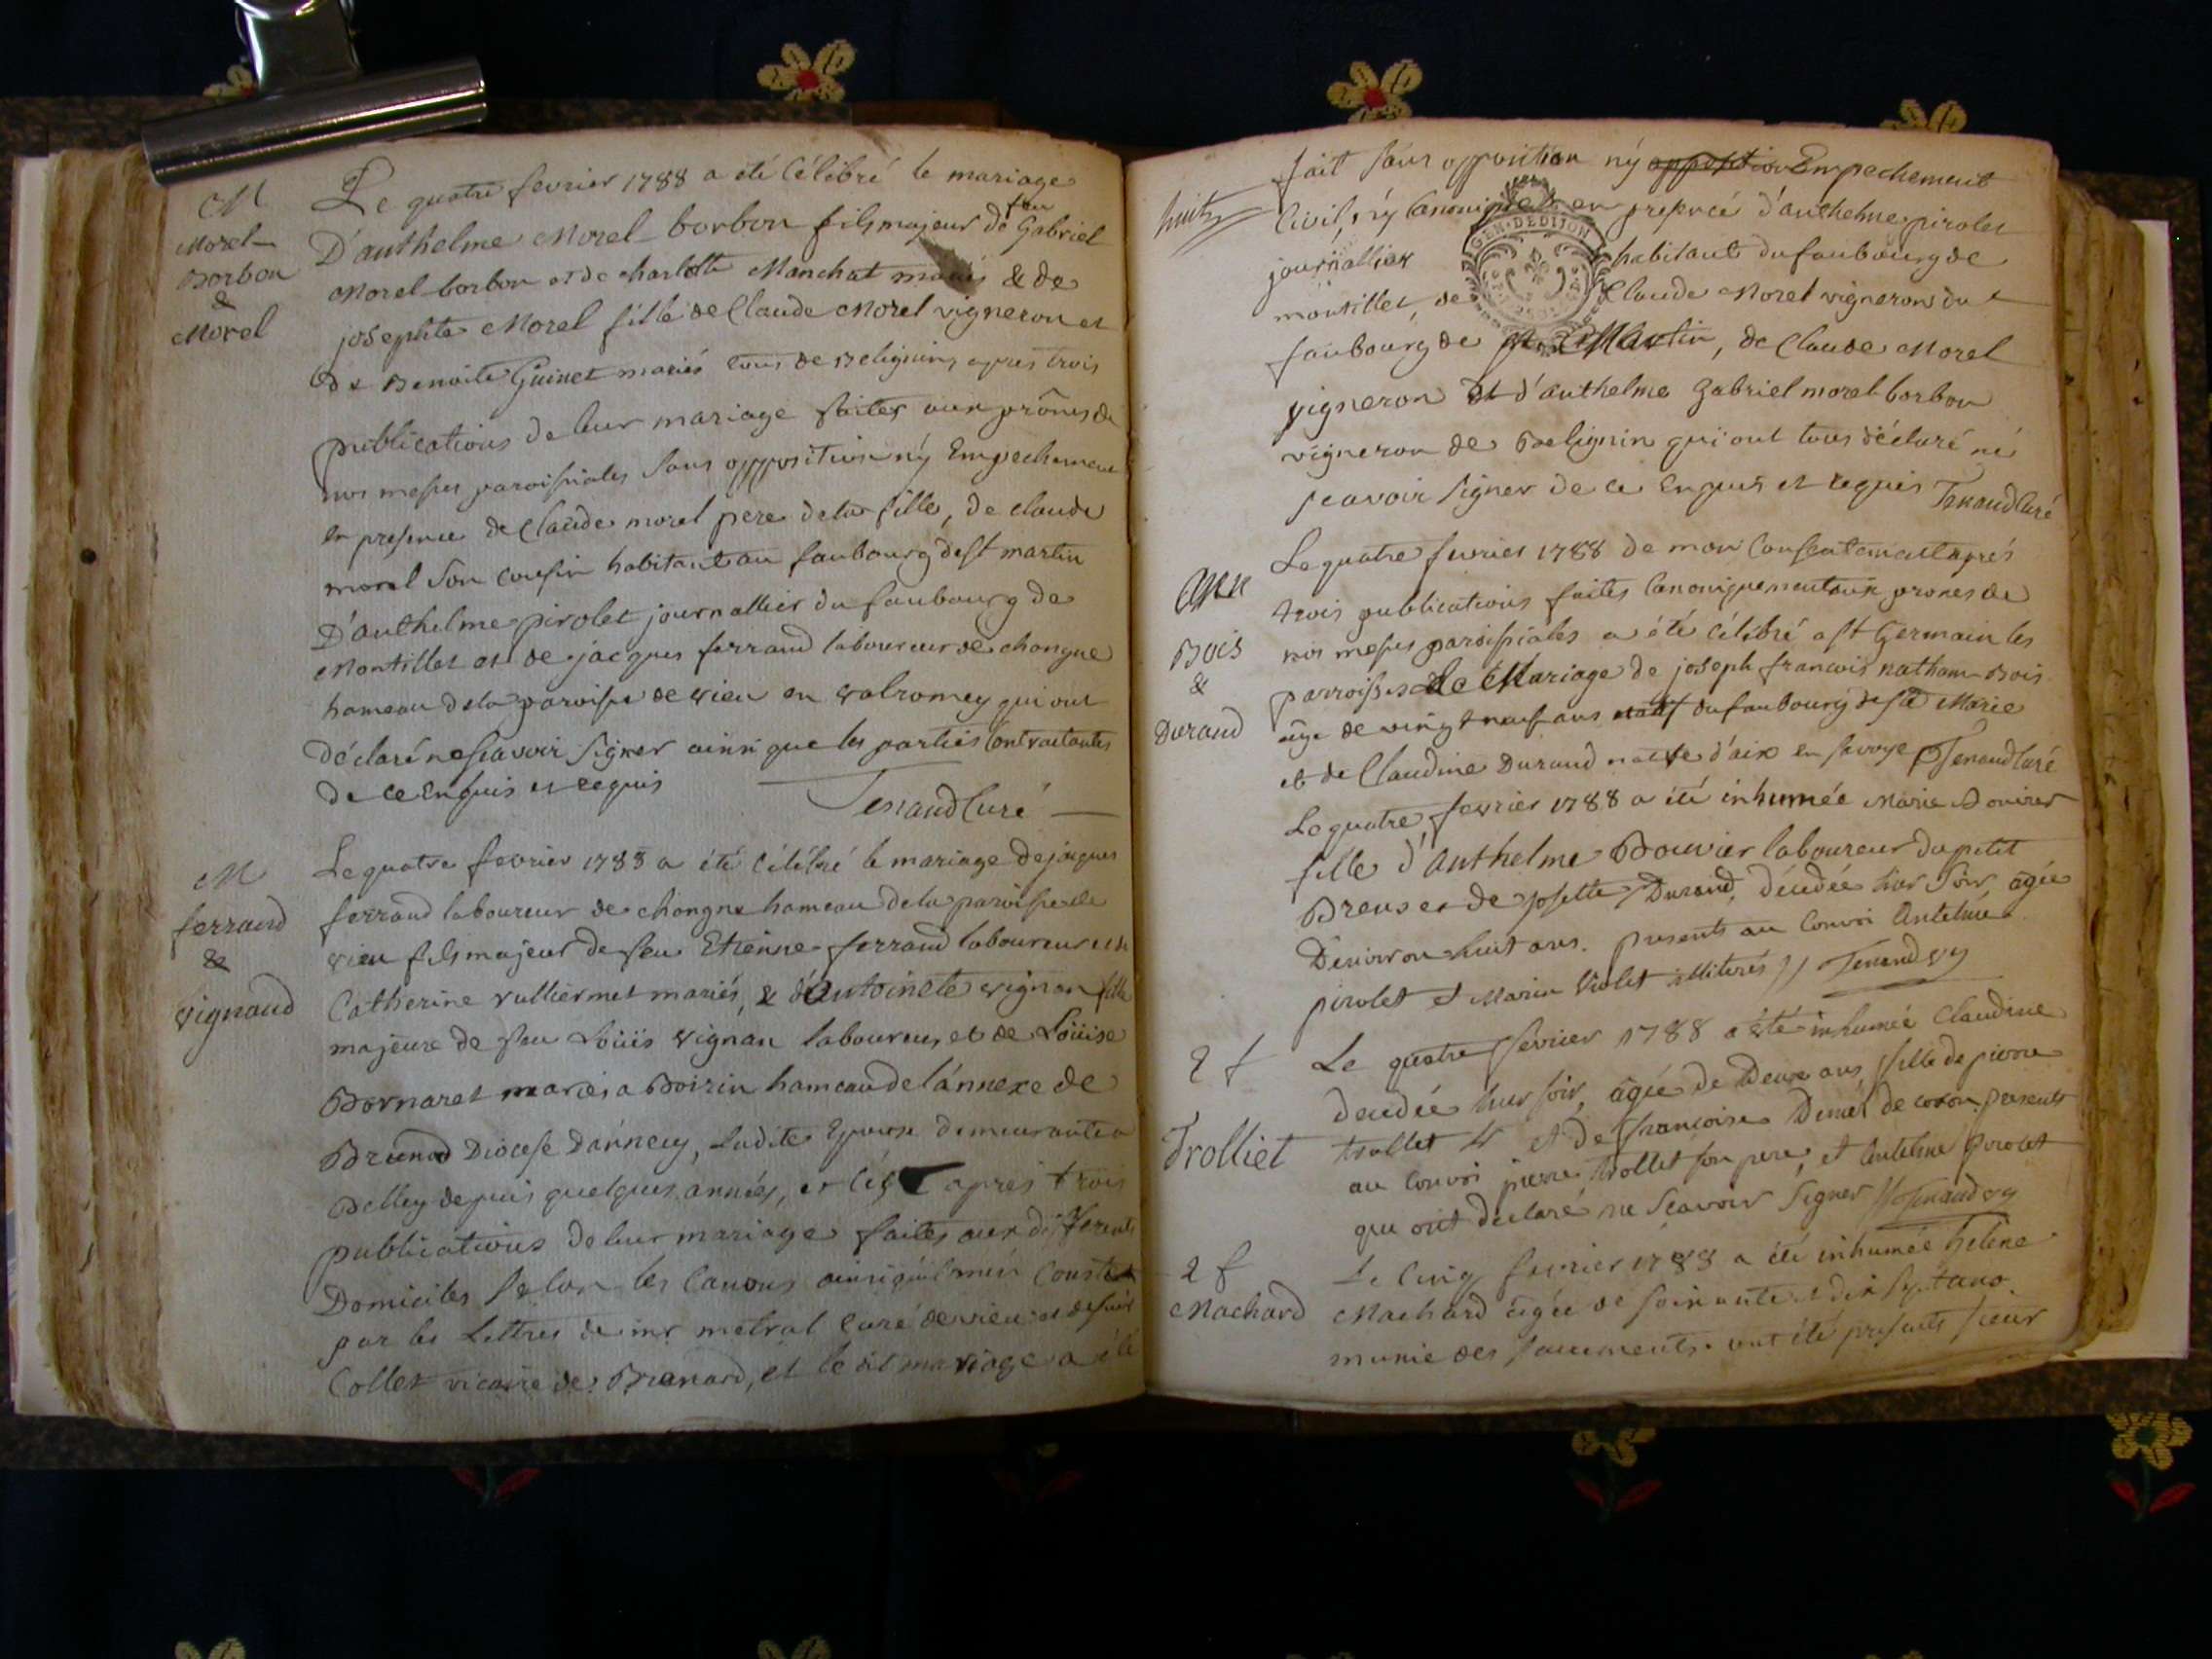 M
Morel
Borbon
&
Morel
Le quatre fevrier 1788 a été Célébré le mariage
D'anthelme Morel borbon fils majeur de feu Gabriel
Morel borbon et de charlotte Manchat mariés & de
josephte Morel fille de Claude Morel vigneron et
de Benoite Guinet mariés tous de Beligning apres trois
publications de leur mariage faites aux prônes de
nos messes paroissiales sans opposition ny Empechement
en presence de Claude morel pere de la fille, de claude
morel son cousin habitant au faubourg de st martin
D'anthelme pirolet journallier du faubourg de
Montillet et de jacques ferrand laboureur de chongne
hameau de la paroisse de vieu en valromey qui ont
déclaré ne scavoir signer ainsi que les parties Contractantes
de ce Enquis et requis
Tenaud Curé
M
ferrand
&
vignaud
Le quatre fevrier 1788 a été Célébré le mariage de jacques
ferrand laboureur de chongne hameau de la paroisse de
vieu fils majeur de feu Etienne ferrand laboureur et de
Catherine vulliermet mariés, & d'Antoinete vignan fille
majeure de feu Loüis vignan laboureur, et de Loüise
Bornaret mariés a Boirin hameau de l'annexe de
Brenod Diocese Dannecy, ladite Epouse demeurante a
Belley depuis quelques années, et ce apres trois
publications de leur mariage faites aux differents
Domiciles selon les Canons ainsi qu'il m'en Conste
par les Lettres de mr metral curé de vieu et de sieur
Collet vicaire de Brenard, et le dit mariage a été
huit
fait sans opposition ny opposition Empechement
Civil, ny Canonique en presence d'anthelme pirolet
journallier habitant du faubourg de
montillet, de Claude Morel vigneron du
faubourg de st Martin, de Claude Morel
vigneron et d'anthelme Gabriel morel borbon
vigneron de Beelignin qui ont tous déclaré ne
scavoir signer de ce Enquis et requis Tenaud Curé
GEN. DE DIJON
Bois
&
Durand
Le quatre fevrier 1788 de mon Consentement aprés
trois publications faites Canoniquement aux prones de
nos messes paroissiales a été célébré a st Germain les
parroisses Le Mariage de joseph francois natham Bois
âgé de vingt neuf ans natif du faubourg de ste Marie
et de Claudine Durand native d'aix en savoye Tenaud Curé
Le quatre fevrier 1788 a été inhumée Marie Bouvier
fille d'Anthelme Bouvier laboureur du petit
Brens et de josette Durand, décédée hier soir, âgée
D'environ huit ans. presents au Convoi Antelme
pirolet et Marin Violet illiterés // Tenaud
2 f
Trolliet
Le quatre fevrier 1788 a été inhumée Claudine
decedée hier soir, âgée de Deux ans fille de pierre
trollet et de francoise Demét de coron. presents
au Convoi pierre trollet son pere, et Antelme pirolet
qui ont declaré ne scavoir signer // Tenaud
2 f
Machard
Le cinq fevrier 1788 a été inhumée helene
Machard âgée de soixante et dix sept ans.
munie des sacrements. ont été presents sieur